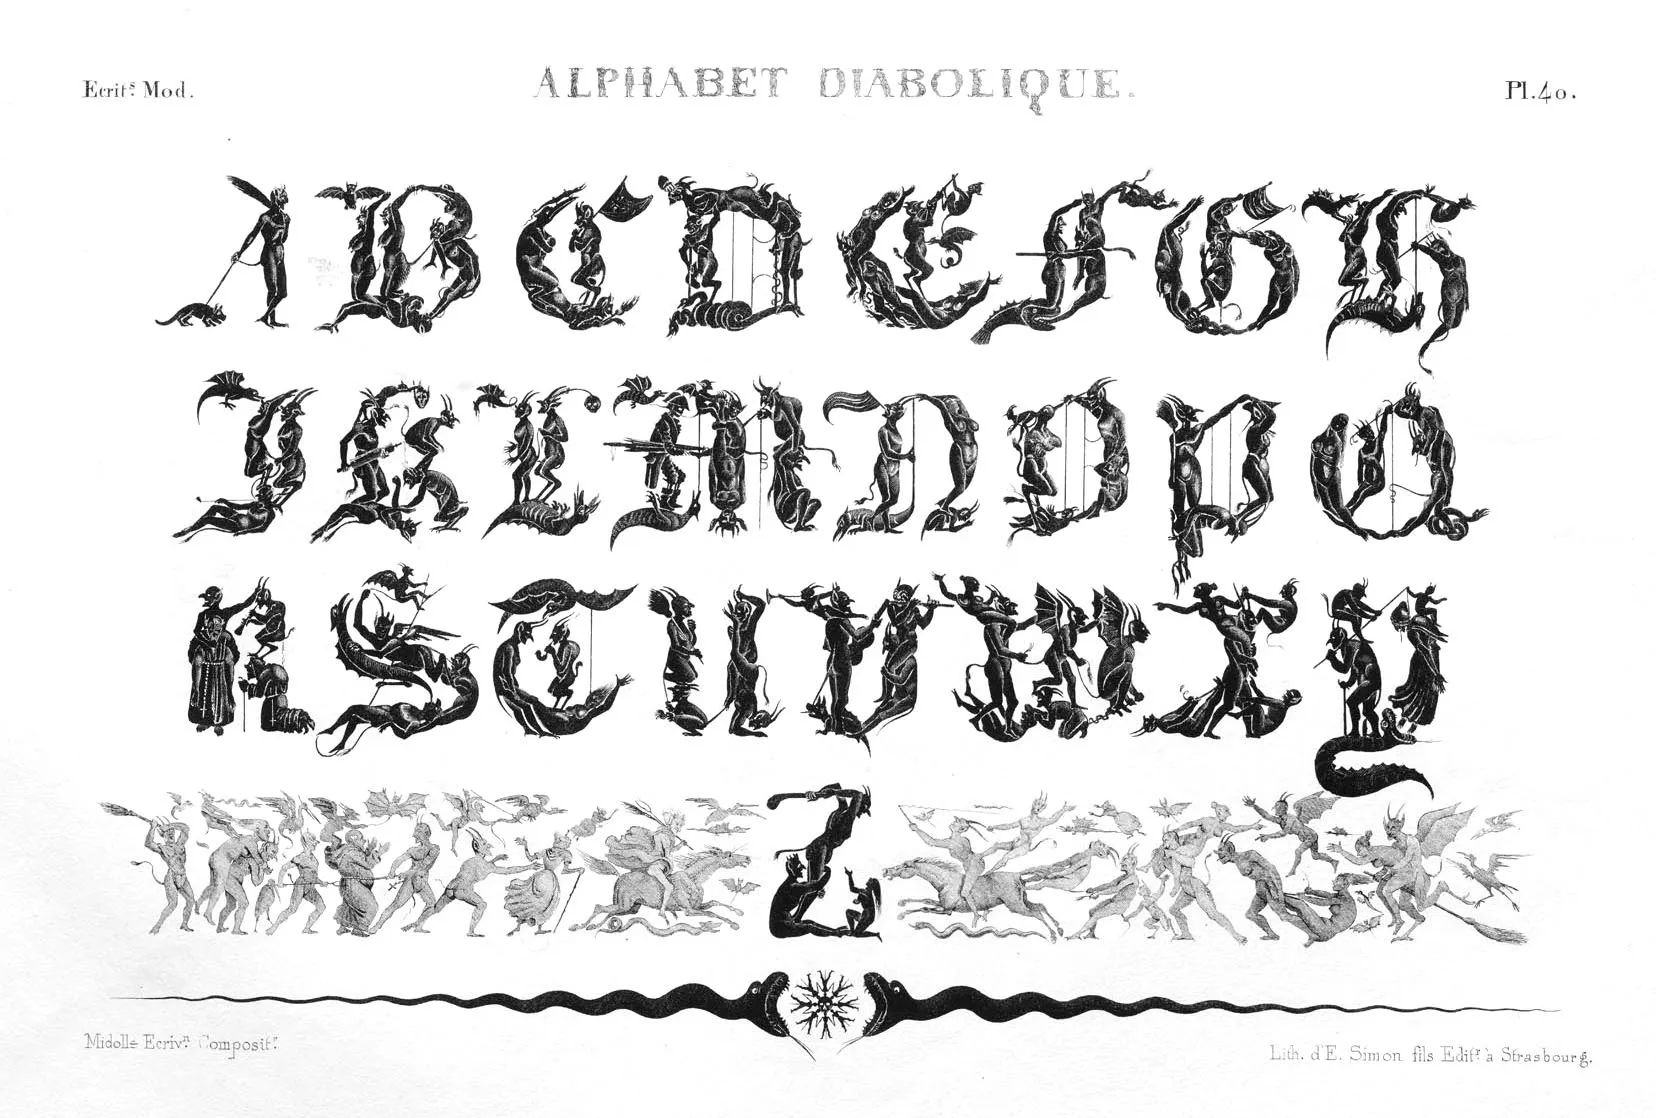 Ecrit.s Mod.
ALPHABET DIABOLIQUE.
Pl.40.
A B C D E F G H
I K L M N O P Q
R S T U V W X Y
Z
Midolle Ecriv.n Composit.r
Lith. d'E. Simon fils Edit.r à Strasbourg.